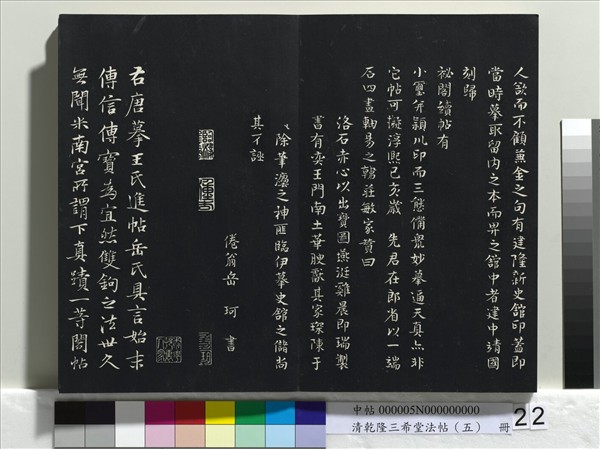 人訟而不顧兼金之句有建隆新史館印蓋即
當時摹取留內之本而畀之館中者建中靖國
刻歸
祕閣續帖有
小璽并潁川印而三態備眾妙摹逼天真亦非
它帖可擬淳熙己亥歲先君在郎省以一端
石四畫軸易之韓莊敏家贊曰
洛石赤心以出寶圖
書有奕王門南土華
除筆瀍之神匪臨伊摹史館之儲尚
其不誣
倦翁岳珂書
右唐摹王氏進帖岳氏具言始末
傳信傳寶為宜然雙鉤之法世久
無聞米南宮所謂下真蹟一等閣帖
中帖 000005N000000000
清乾隆三希堂法帖(五) 冊
22